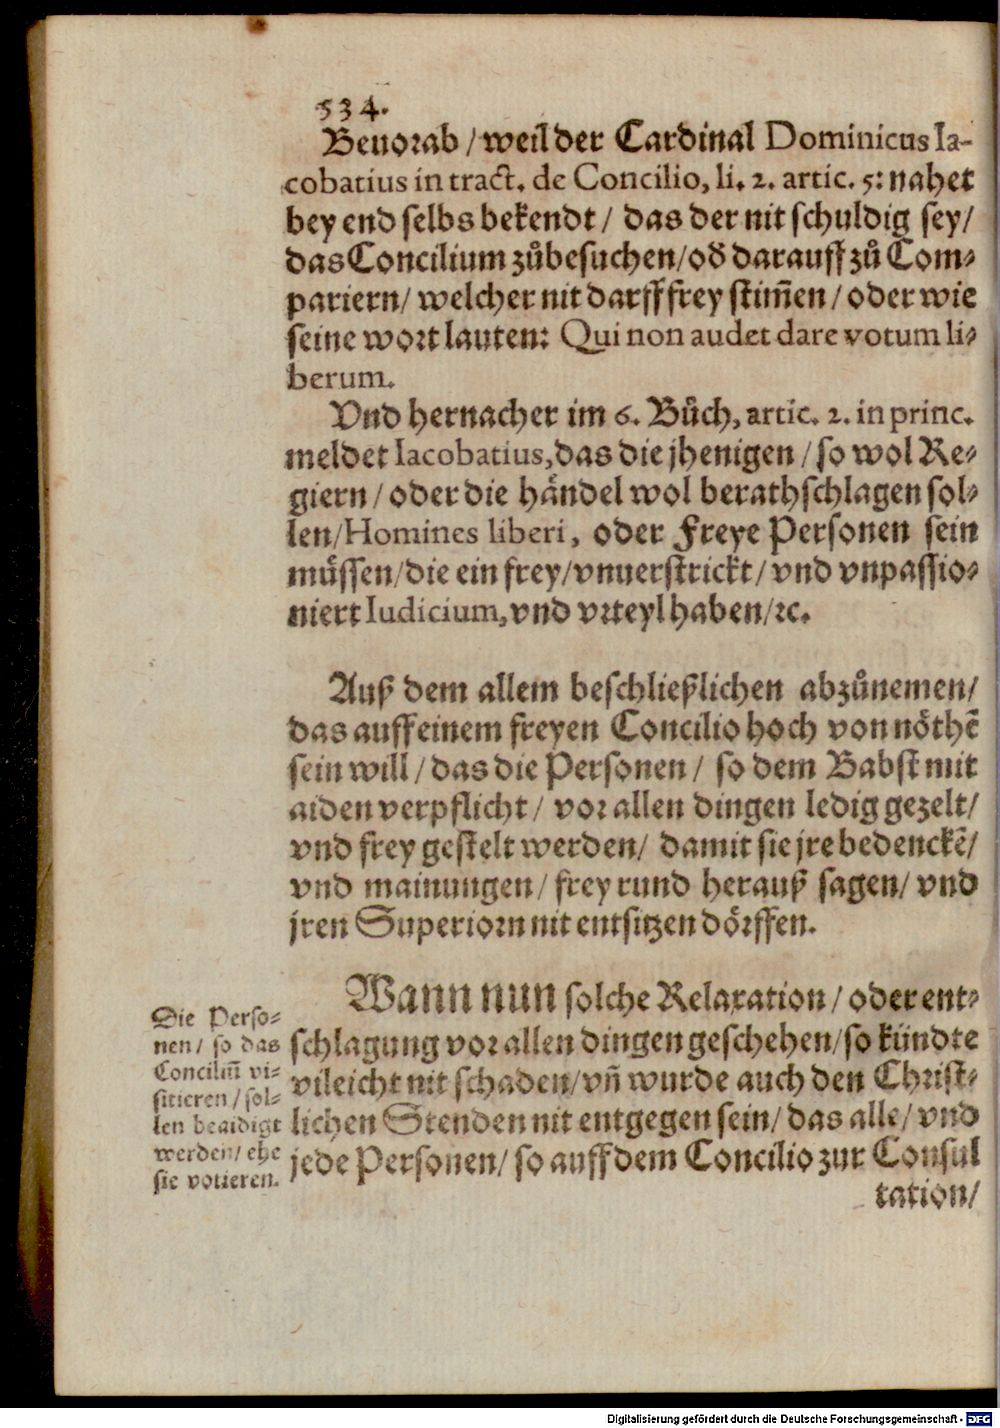 534.
Beuorab / weil der Cardinal Dominicus Ia-
cobatius in tract. de Concilio, li. 2. artic. 5: nahet
bey end selbs bekendt / das der nit schuldig sey /
das Concilium zůbesuchen / oď darauff zů Com-
pariern / welcher nit darff frey stim̃en / oder wie
seine wort lauten: Qui non audet dare votum li-
berum.
Vnd hernacher im 6. Bůch, artic. 2. in princ.
meldet Iacobatius, das die jhenigen / so wol Re-
giern / oder die händel wol berathschlagen sol-
len / Homines liberi, oder Freye Personen sein
müssen / die ein frey / vnuerstrickt / vnd vnpassio-
niert Iudicium, vnd vrteyl haben / ꝛc.
Auß dem allem beschließlichen abzůnemen /
das auff einem freyen Concilio hoch von nöthẽ
sein will / das die Personen / so dem Babst mit
aiden verpflicht / vor allen dingen ledig gezelt /
vnd frey gestelt werden / damit sie jre bedenckẽ /
vnd mainungen / frey rund herauß sagen / vnd
jren Superiorn nit entsitzen dörffen.
Wann nun solche Relaxation / oder ent-
schlagung vor allen dingen geschehen / so kündte
vileicht nit schaden / vñ wurde auch den Christ-
lichen Stenden nit entgegen sein / das alle / vnd
jede Personen / so auff dem Concilio zur Consul
tation /
Die Perso-
nen / so das
Conciliũ vi-
sitieren / sol-
len beaidigt
werden / ehe
sie votieren.
Digitalisierung gefördert durch die Deutsche Forschungsgemeinschaft - DFG